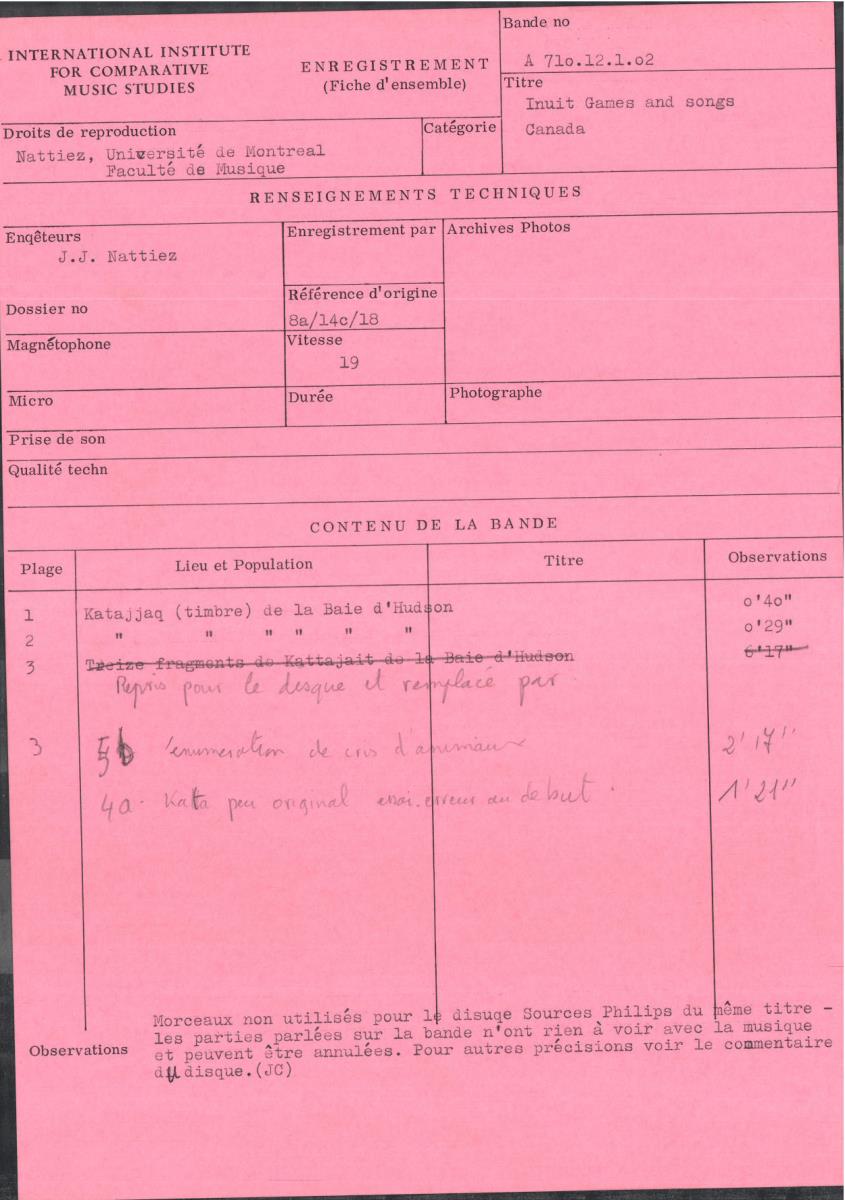 INTERNATIONAL INSTITUTE
FOR COMPARATIVE
MUSIC STUDIES
ENREGISTREMENT
(Fiche d'ensemble)
Bande no
A 71o.12.1.o2
Titre
Inuit Games and songs
Canada
Droits de reproduction
Nattiez, Université de Montreal
Faculté de Musique
Catégorie
RENSEIGNEMENTS TECHNIQUES
Enqêteurs
J.J. Nattiez
Enregistrement par
Archives Photos
Dossier no
Référence d'origine
8a/14c/18
Magnétophone
Vitesse
19
Micro
Durée
Photographe
Prise de son
Qualité techn
CONTENU DE LA BANDE
Plage Lieu et Population Titre Observations
1 Katajjaq (timbre) de la Baie d'Hudson o'4o"
2 " " " " " " o'29"
3 Treize fragments de Kattajait de la Baie d'Hudson 6'17"
Repris pour le desque et remplacé par
3 5b l'enumeration de cris d'animaux 2'17''
4a. Kata peu original essai.erreur au debut. 1'21''
Observations
Morceaux non utilisés pour le disuqe Sources Philips du même titre -
les parties parlées sur la bande n'ont rien à voir avec la musique
et peuvent être annulées. Pour autres précisions voir le commentaire
du disque.(JC)